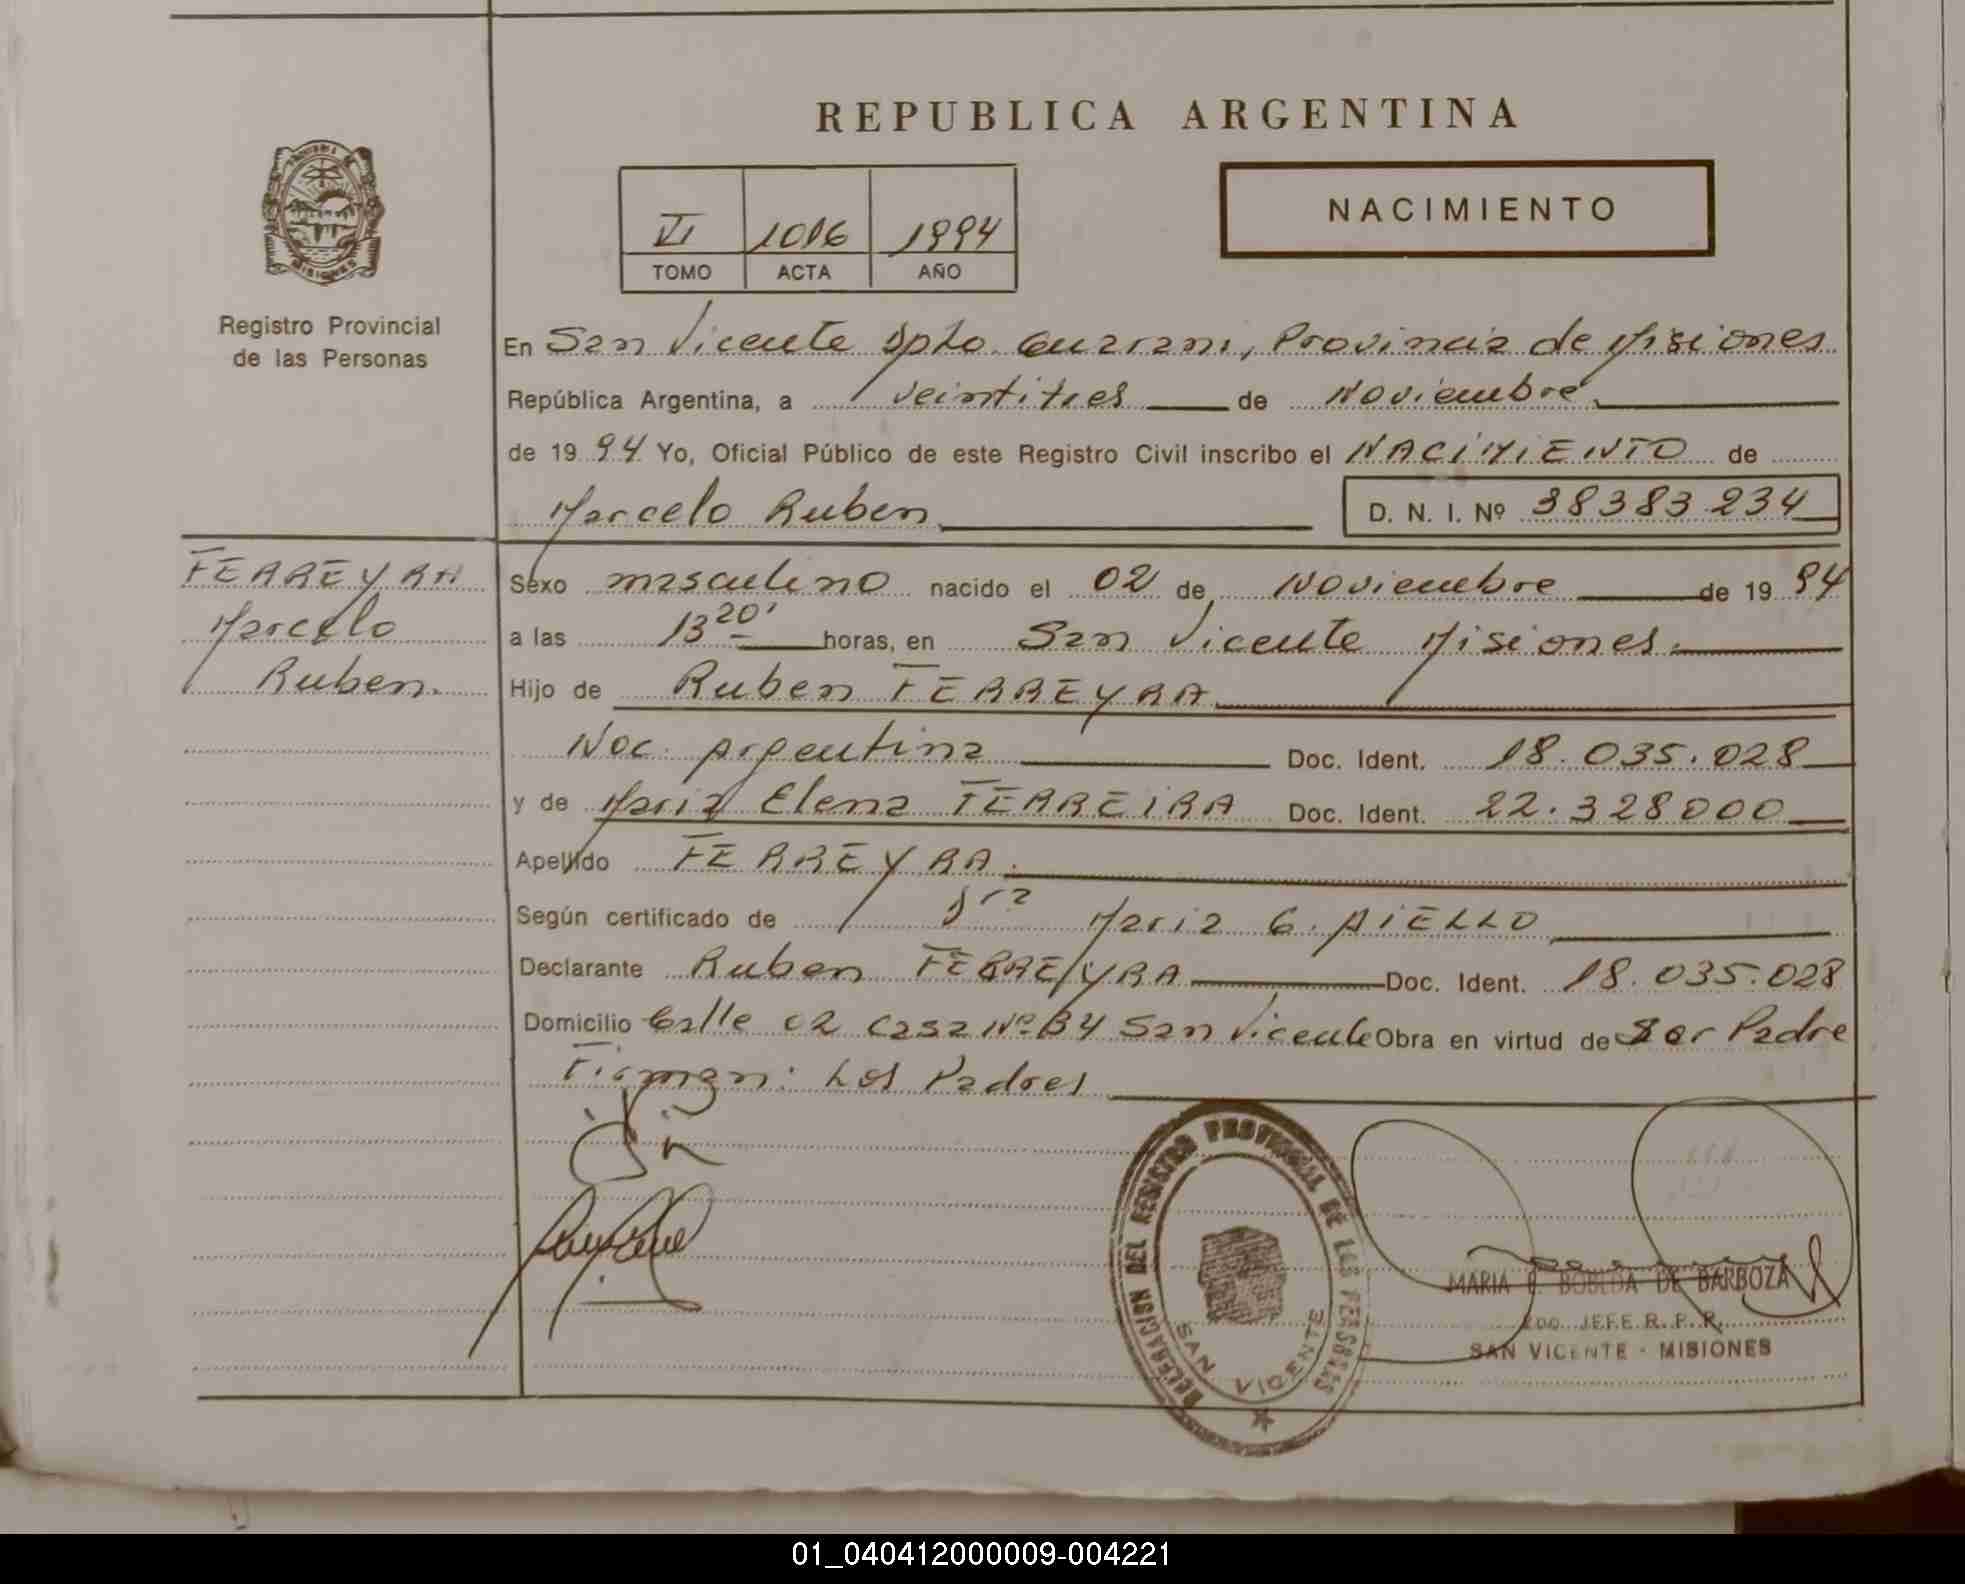 REPUBLICA ARGENTINA
PROVINCIA DE
MISIONES
Registro Provincial
de las Personas
VI 1016 1994
TOMO ACTA AÑO
NACIMIENTO
En San Vicente Dpto. Guarani, Provincia de Misiones
República Argentina, a veintitres de Noviembre
de 19 94 Yo, Oficial Público de este Registro Civil inscribo el NACIMIENTO de
Marcelo Ruben D. N. I. Nº 38383234
FERREYRA
Marcelo
Ruben.
Sexo masculino nacido el 02 de Noviembre de 19 94
a las 13 20' horas, en San Vicente Misiones.
Hijo de Ruben FERREYRA
Nac. Argentina Doc. Ident. 18.035.028
y de Maria Elena FERREIRA Doc. Ident. 22.328000
Apellido FERREYRA.
Según certificado de Dra Maria G. AIELLO
Declarante Ruben FERREYRA Doc. Ident. 18.035.028
Domicilio Calle 02 Casa Nº 34 San Vicente Obra en virtud de Ser Padre
Firman: Los Padres
DELEGACION DEL REGISTRO PROVINCIAL DE LAS PERSONAS
SAN VICENTE
MARIA E. BOBLDA DE BARBOZA
2do. JEFE R. P. P.
SAN VICENTE - MISIONES
01_040412000009-004221